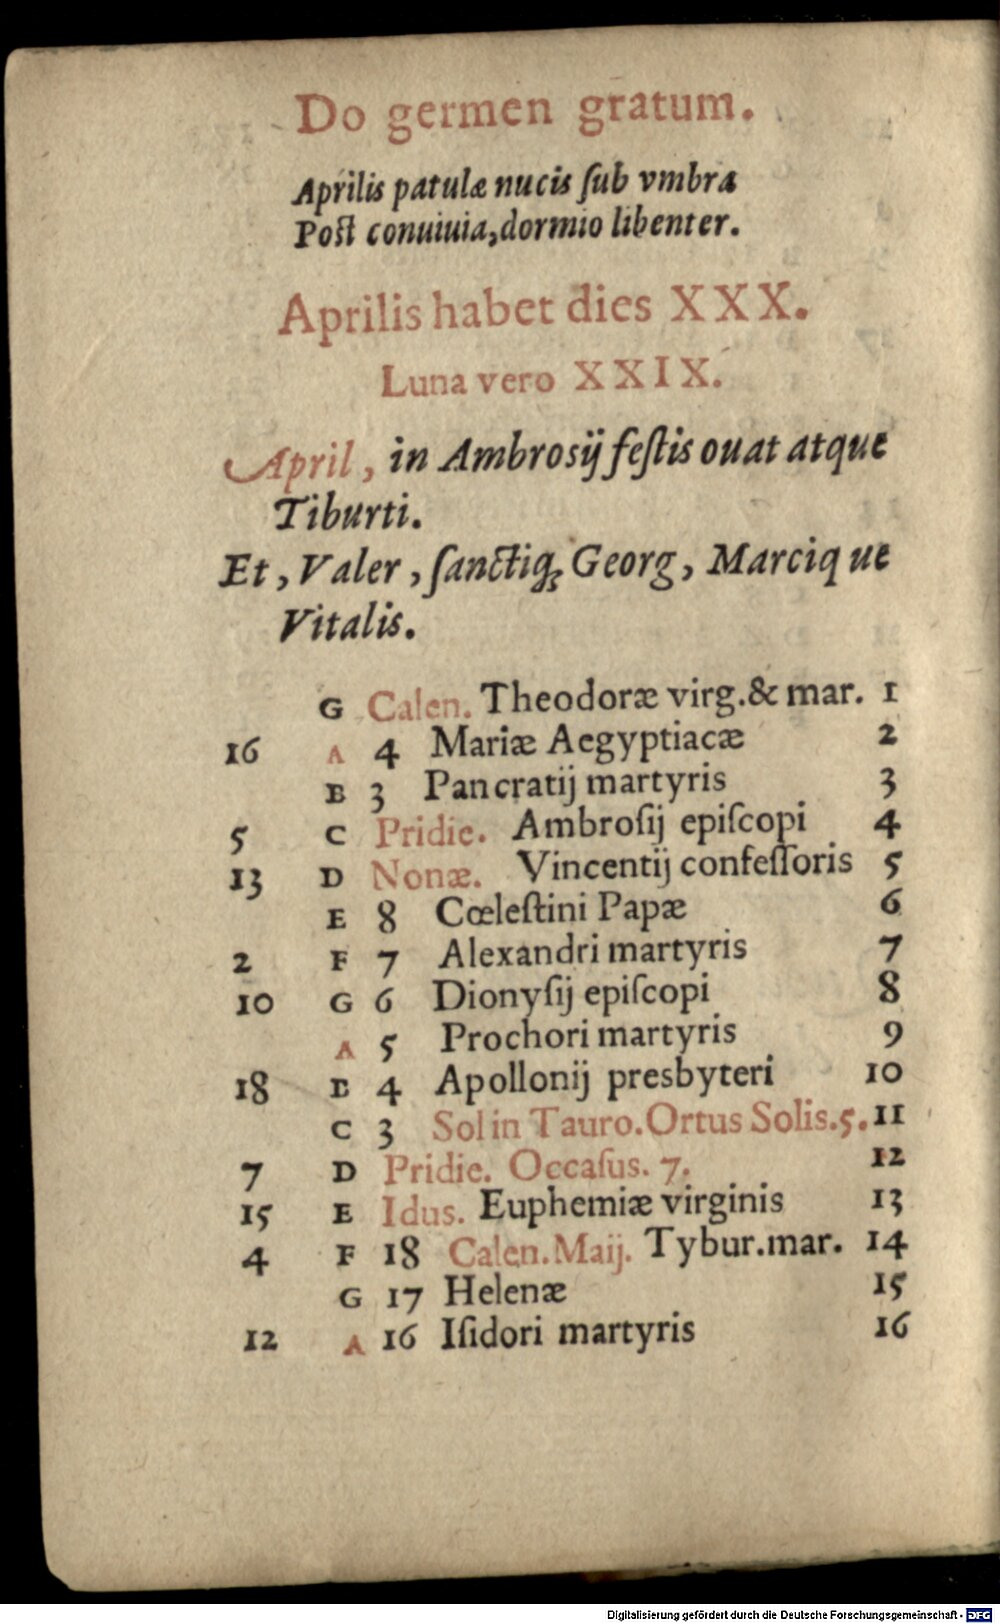 Do germen gratum.
Aprilis patulæ nucis ſub vmbra
Poſt conuiuia,dormio libenter.
Aprilis habet dies XXX.
Luna vero XXIX.
April, in Ambrosij feſtis ouat atque
Tiburti.
Et, Valer, ſanctiq; Georg, Marcique
Vitalis.
G Calen. Theodoræ virg.& mar. 1
16 A 4 Mariæ Aegyptiacæ 2
B 3 Pancratij martyris 3
5 C Pridie. Ambroſij epiſcopi 4
13 D Nonæ. Vincentij confeſſoris 5
E 8 Cœleſtini Papæ 6
2 F 7 Alexandri martyris 7
10 G 6 Dionyſij epiſcopi 8
A 5 Prochori martyris 9
18 B 4 Apollonij presbyteri 10
C 3 Sol in Tauro.Ortus Solis.5. 11
7 D Pridie. Occaſus. 7. 12
15 E Idus. Euphemiæ virginis 13
4 F 18 Calen.Maij. Tybur.mar. 14
G 17 Helenæ 15
12 A 16 Iſidori martyris 16
Digitalisierung gefördert durch die Deutsche Forschungsgemeinschaft - DFG